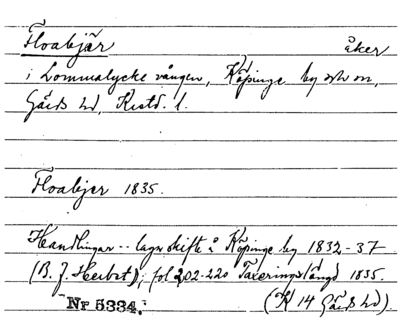 Floabjär åker
i Lommalycke vången, Köpinge by och sn,
Gärds hd, Krist. l.
Floabjer 1835.
Handlingar -- lagaskifte å Köpinge by 1832-37
(B. J. Herbst), fol 202-220 Taxeringslängd 1835.
Nr 5334. (K 14 Gärds hd)